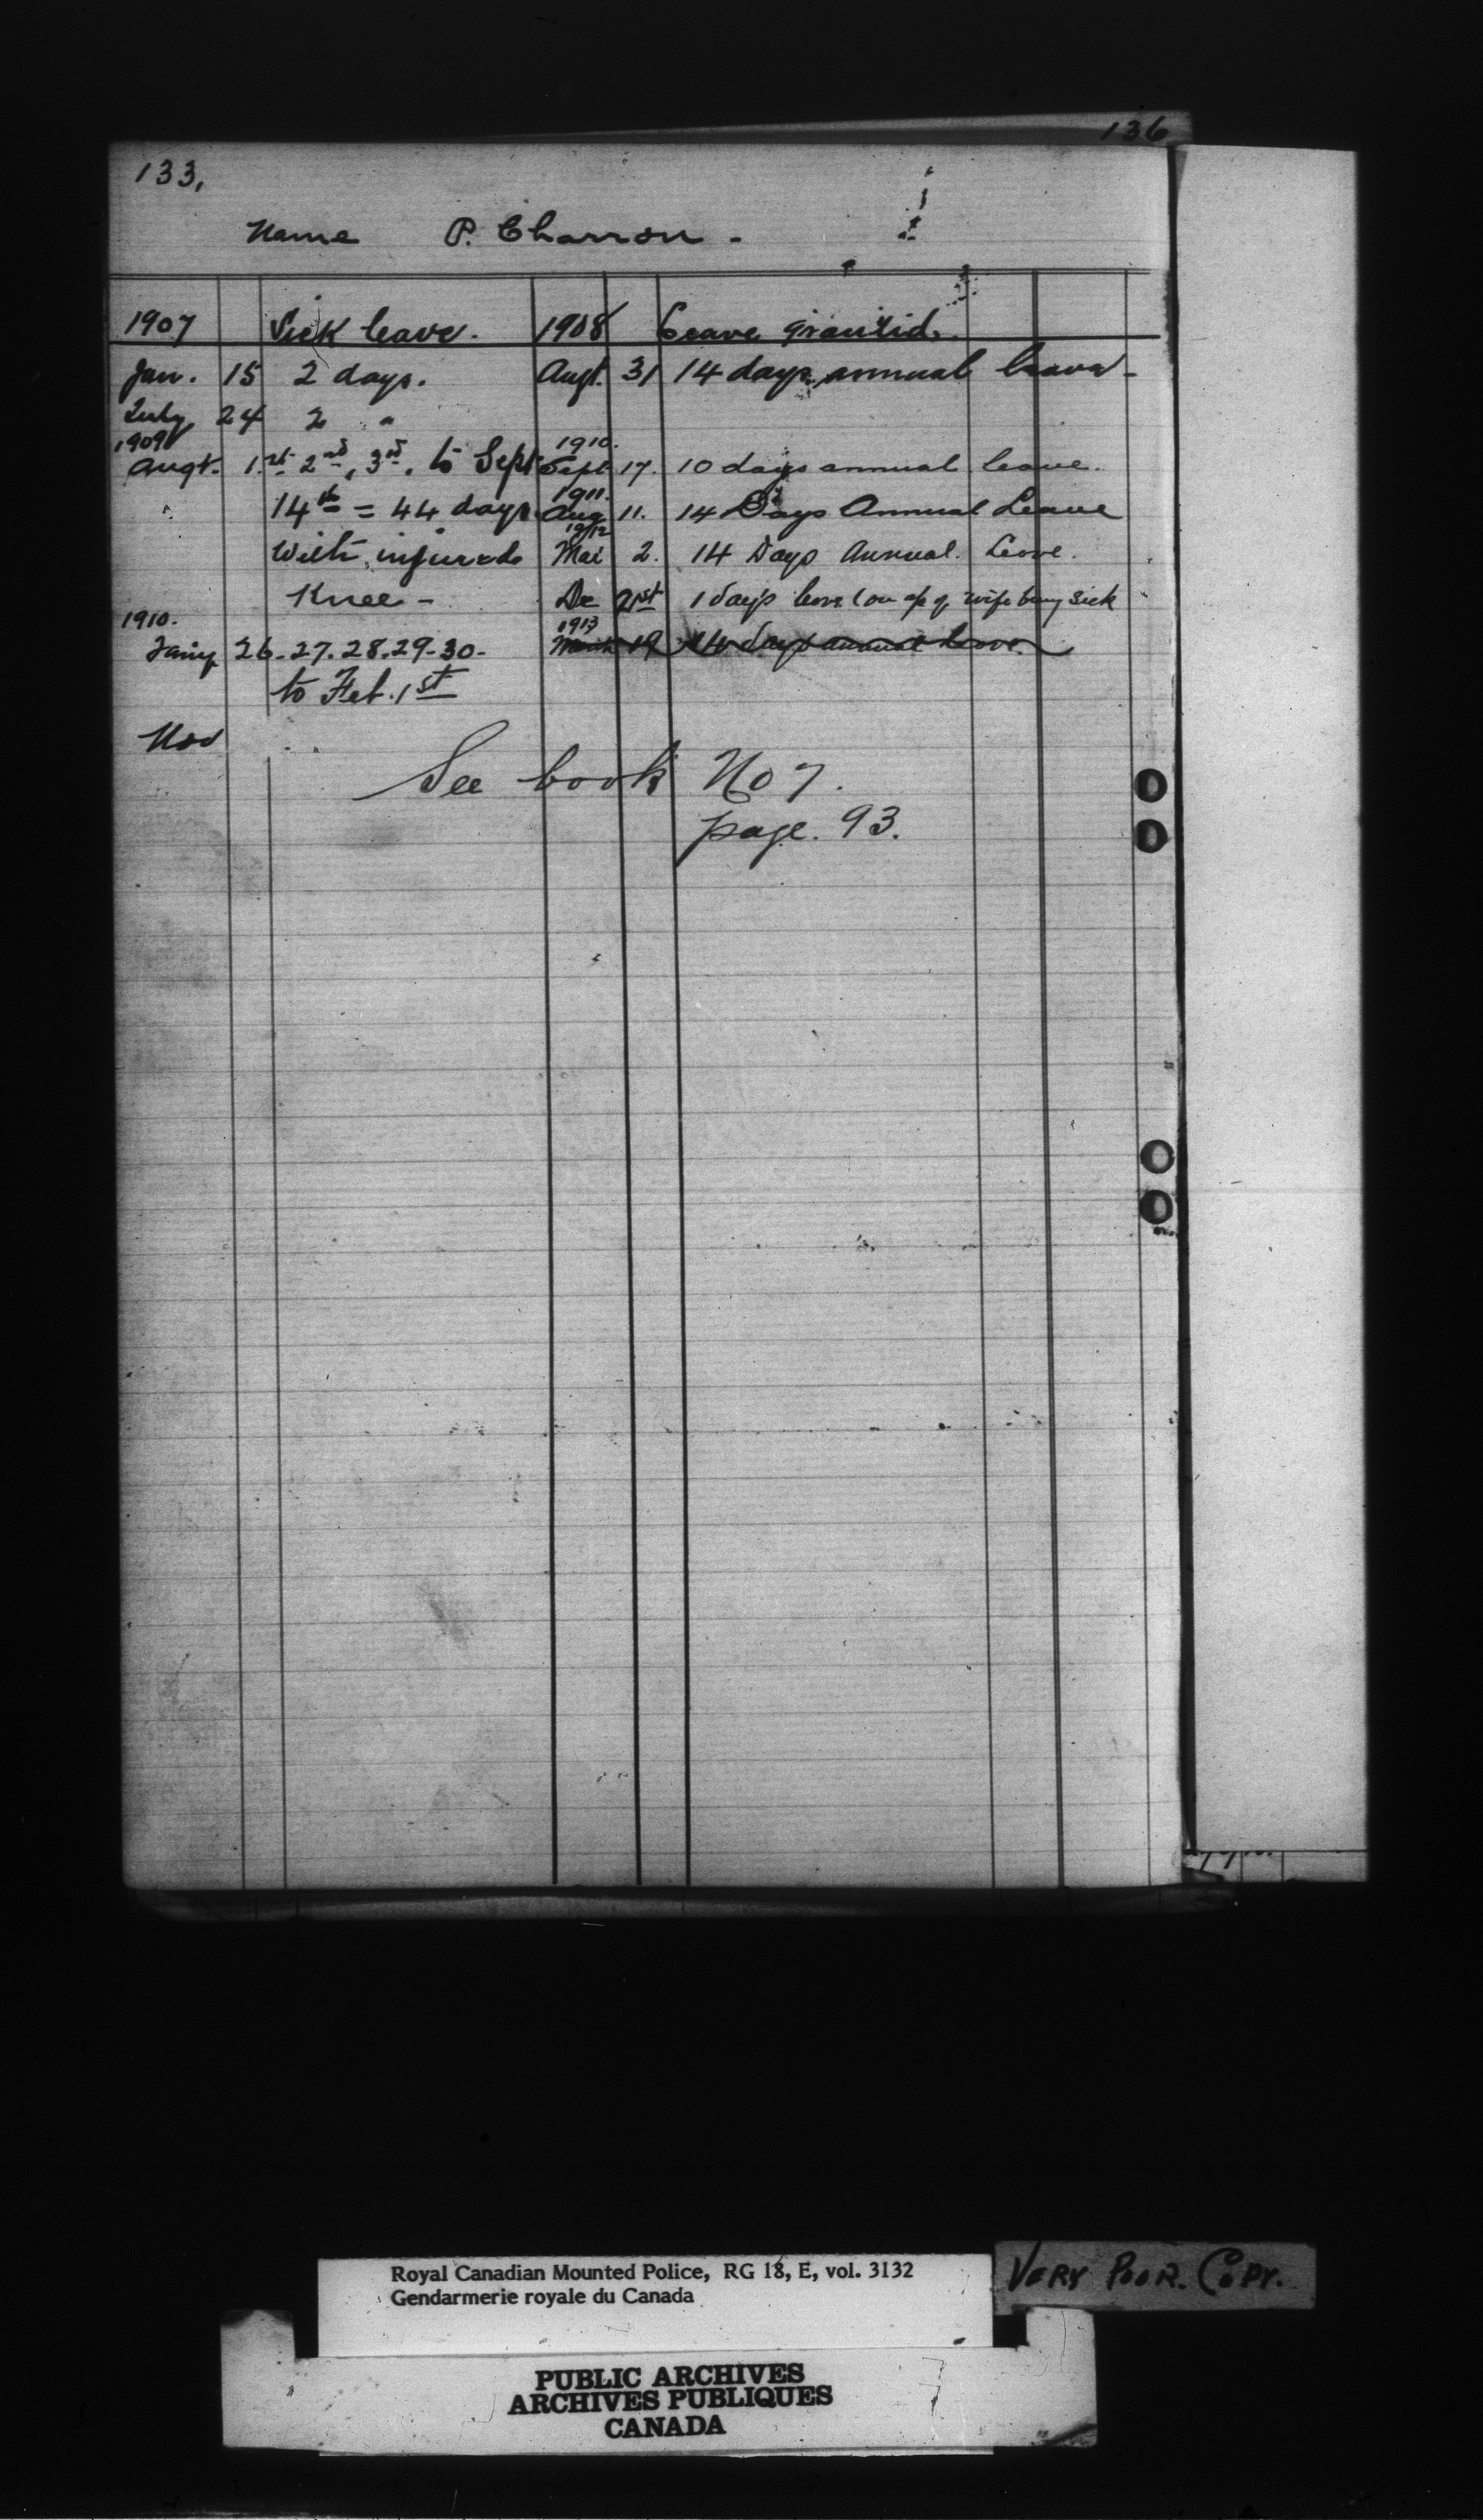 136
133.
Name P. Charron -
1907 Sick leave. 1908 Leave granted.
Jan. 15 2 days. Augt. 31 14 days annual leave -
July 24 2 "
1909 1910.
Augt. 1st 2nd, 3rd, to Sept Sept 17. 10 days annual leave.
1911.
14th = 44 days. Aug 11. 14 Days Annual Leave
1912
With injured Mai 2. 14 Days Annual Leave.
Knee - De 21st 1 day's leave (on a/c of wife being sick
1910. 1913
Jany 26-27.28.29-30- March 19 14 days annual leave
to Feb. 1st
Nov
See book No 7.
page. 93.
Royal Canadian Mounted Police, RG 18, E, vol. 3132
Gendarmerie royale du Canada
VERY POOR. COPY.
PUBLIC ARCHIVES
ARCHIVES PUBLIQUES
CANADA